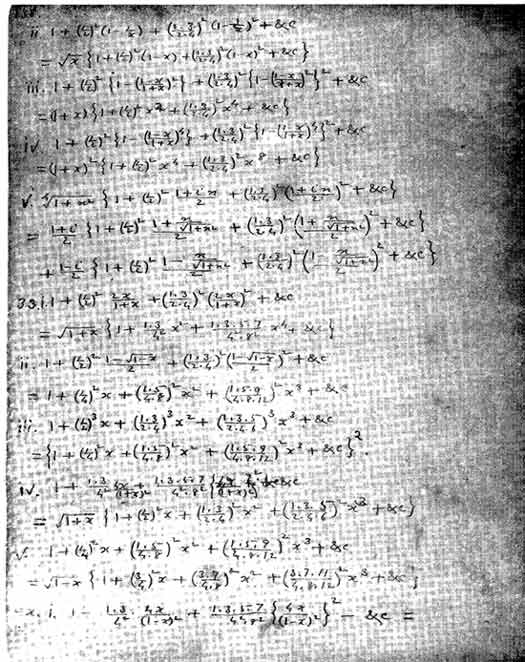 ii. 1 + (1/2)²(1 - 1/x) + (1·3/2·4)²(1 - 1/x)² + &c
= √x {1 + (1/2)²(1-x) + (1·3/2·4)²(1-x)² + &c}
iii. 1 + (1/2)²{1 - (1-x/1+x)²} + (1·3/2·4)²{1 - (1-x/1+x)²}² + &c
= (1+x){1 + (1/2)²x² + (1·3/2·4)²x⁴ + &c}
iv. 1 + (1/2)²{1 - (1-x/1+x)⁴} + (1·3/2·4)²{1 - (1-x/1+x)⁴}² + &c
= (1+x)²{1 + (1/2)²x⁴ + (1·3/2·4)²x⁸ + &c}
v. ∜1+x² {1 + (1/2)² 1+ix/2 + (1·3/2·4)²(1+ix/2)² + &c}
= 1+i/2 {1 + (1/2)² 1+x/√1+x²/2 + (1·3/2·4)²(1+x/√1+x²/2)² + &c}
+ 1-i/2 {1 + (1/2)² 1-x/√1+x²/2 + (1·3/2·4)²(1-x/√1+x²/2)² + &c}
33. i. 1 + (1/2)² 2x/1+x + (1·3/2·4)²(2x/1+x)² + &c
= √1+x {1 + 1·3/4² x² + 1·3·5·7/4²·8² x⁴ + &c}
ii. 1 + (1/2)² 1-√1-x/2 + (1·3/2·4)²(1-√1-x/2)² + &c
= 1 + (1/4)²x + (1·5/4·8)²x² + (1·5·9/4·8·12)²x³ + &c
iii. 1 + (1/2)³x + (1·3/2·4)³x² + (1·3·5/2·4·6)³x³ + &c
= {1 + (1/4)²x + (1·5/4·8)²x² + (1·5·9/4·8·12)²x³ + &c}².
iv. 1 + 1·3/4² 4x/(1+x)² + 1·3·5·7/4²·8² {4x/(1+x)²}² + &c
= √1+x {1 + (1/2)²x + (1·3/2·4)²x² + (1·3·5/2·4·6)²x³ + &c}
v. 1 + (1/4)²x + (1·5/4·8)²x² + (1·5·9/4·8·12)²x³ + &c
= √1-x {1 + (3/4)²x + (3·7/4·8)²x² + (3·7·11/4·8·12)²x³ + &c}
x. i. 1 - 1·3/4² 4x/(1-x)² + 1·3·5·7/4²·8² {4x/(1-x)²}² - &c =